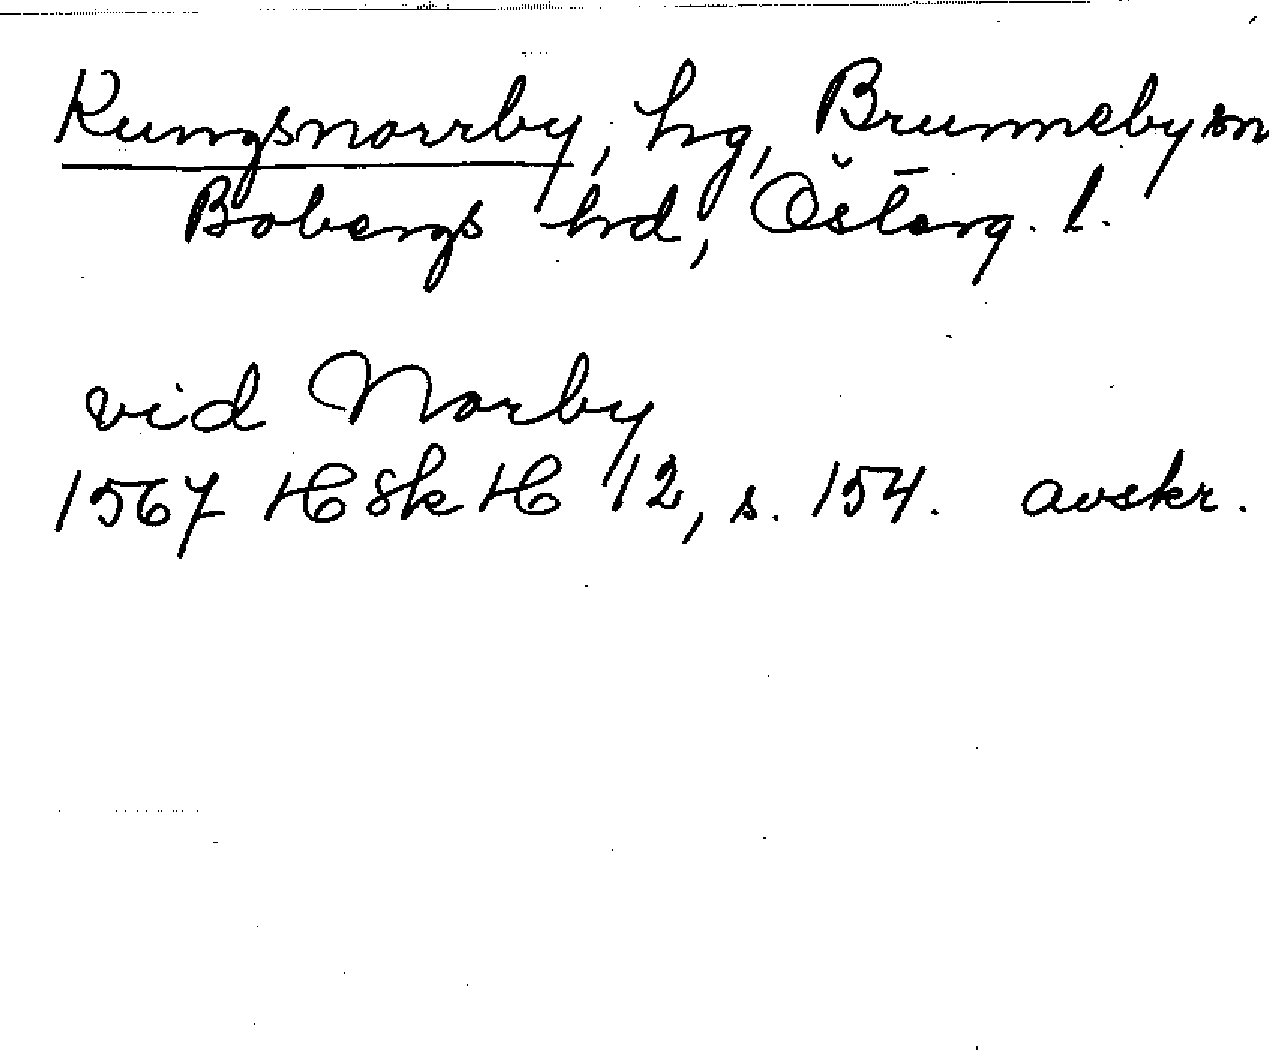 Kungsnorrby, hg, Brunneby sn
Bobergs hrd, Österg. l.
vid Norby
1567 HSkH 12, s. 154. avskr.